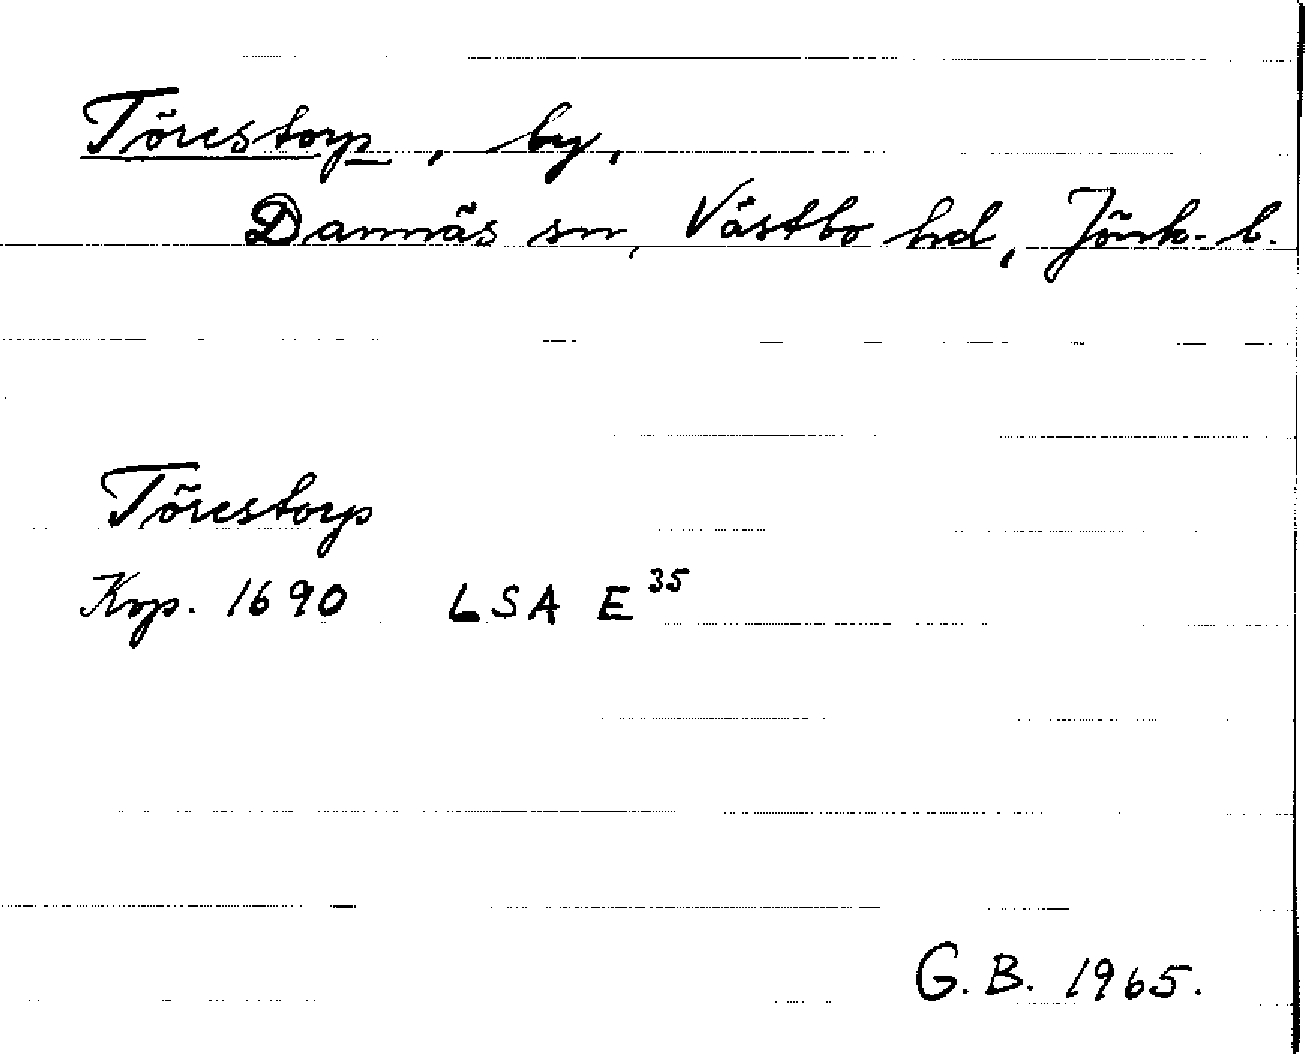 Törestorp, by,
Dannäs sn, Västbo hd, Jönk. l.
Törestorp
Kop. 1690 LSA E 35
G. B. 1965.